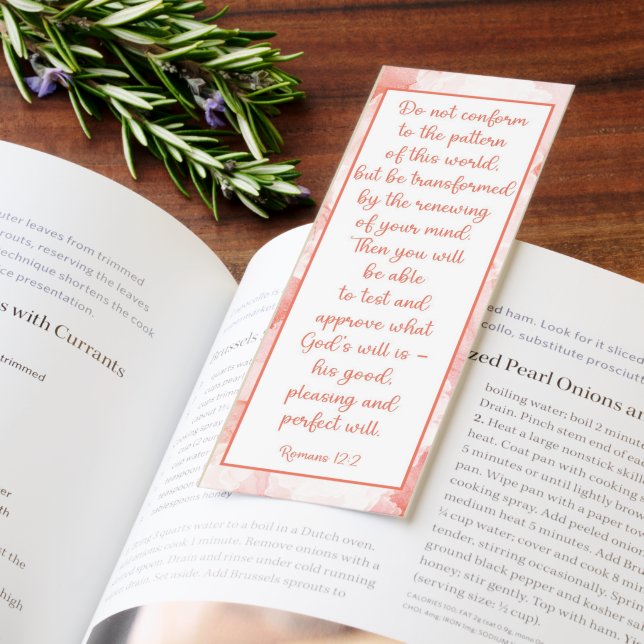 outer leaves from trimmed
sprouts, reserving the leaves
technique shortens the cook
presentation.
s with Currants
trimmed
the
high
Do not conform
to the pattern
of this world,
but be transformed
by the renewing
of your mind.
Then you will
be able
to test and
approve what
God's will is –
his good,
pleasing and
perfect will.
Romans 12:2
Capocollo is
supermarket
Brussels
quarts water
cups
teaspoon
tablespoons honey
3 quarts water to a boil in a Dutch oven.
onions; cook 1 minute. Remove onions with a
spoon. Drain and rinse under cold running
drain. Set aside. Add Brussels sprouts to
ham. Look for it sliced
substitute prosciutto
Pearl Onions an
boiling water; boil 2 minute
Drain. Pinch stem end of ea
2. Heat a large nonstick skill
heat. Coat pan with cooking s
5 minutes or until lightly brow
pan. Wipe pan with a paper tow
cooking spray. Add peeled onion
medium heat 5 minutes. Add Bru
¼ cup water; cover and cook 8 mi
tender, stirring occasionally. Sprin
ground black pepper and kosher sa
honey; stir gently. Top with ham.
(serving size: ½ cup).
CALORIES 100; FAT 2g (sat 0.9g, mono
CHOL 4mg; IRON 1mg; SODIUM